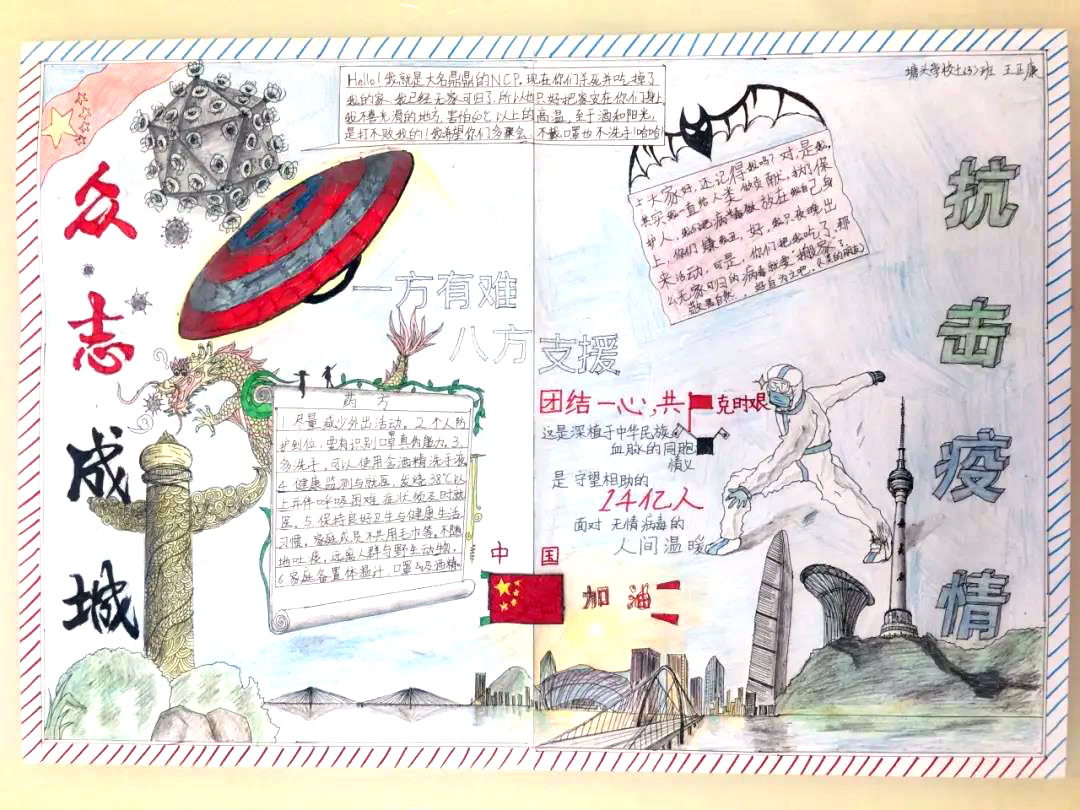 Hello！我就是大名鼎鼎的NCP，现在你们杀死并吃掉了
我的家，我已经无家可归了，所以也只好把家安在你们身上
我不喜光滑的地方，害怕60℃以上的高温，至于酒和阳光，
是打不败我的！我希望你们多聚会，不戴口罩也不洗手！哈哈！
王正康
众志成城
抗击疫情
大家好，还记得我吗？对，是我，
其实我一直给人类做贡献，我们保
护人，我们把病毒做放在我自己身
上，你们嫌我丑，好，我只夜晚出
来活动，可是，你们把我吃了，那
么无家可归的病毒就要“搬家”了，
好自为之吧
一方有难
八方支援
团结一心，共克时艰
这是深植于中华民族
血脉的同胞
情义
是守望相助的
14亿人
面对 无情病毒的
人间温暖
药方
1.尽量减少外出活动。2.个人防
护到位，要有识别口罩真伪能力。3.
多洗手，可以使用含酒精洗手液
4.健康监测与就医，发烧38℃以
上并伴呼吸困难症状应及时就
医。5.保持良好卫生与健康生活
习惯，家庭成员不共用毛巾等，不随
地吐痰，远离人群与野生动物。
6.家庭备置体温计，口罩以及酒精
中国
加油